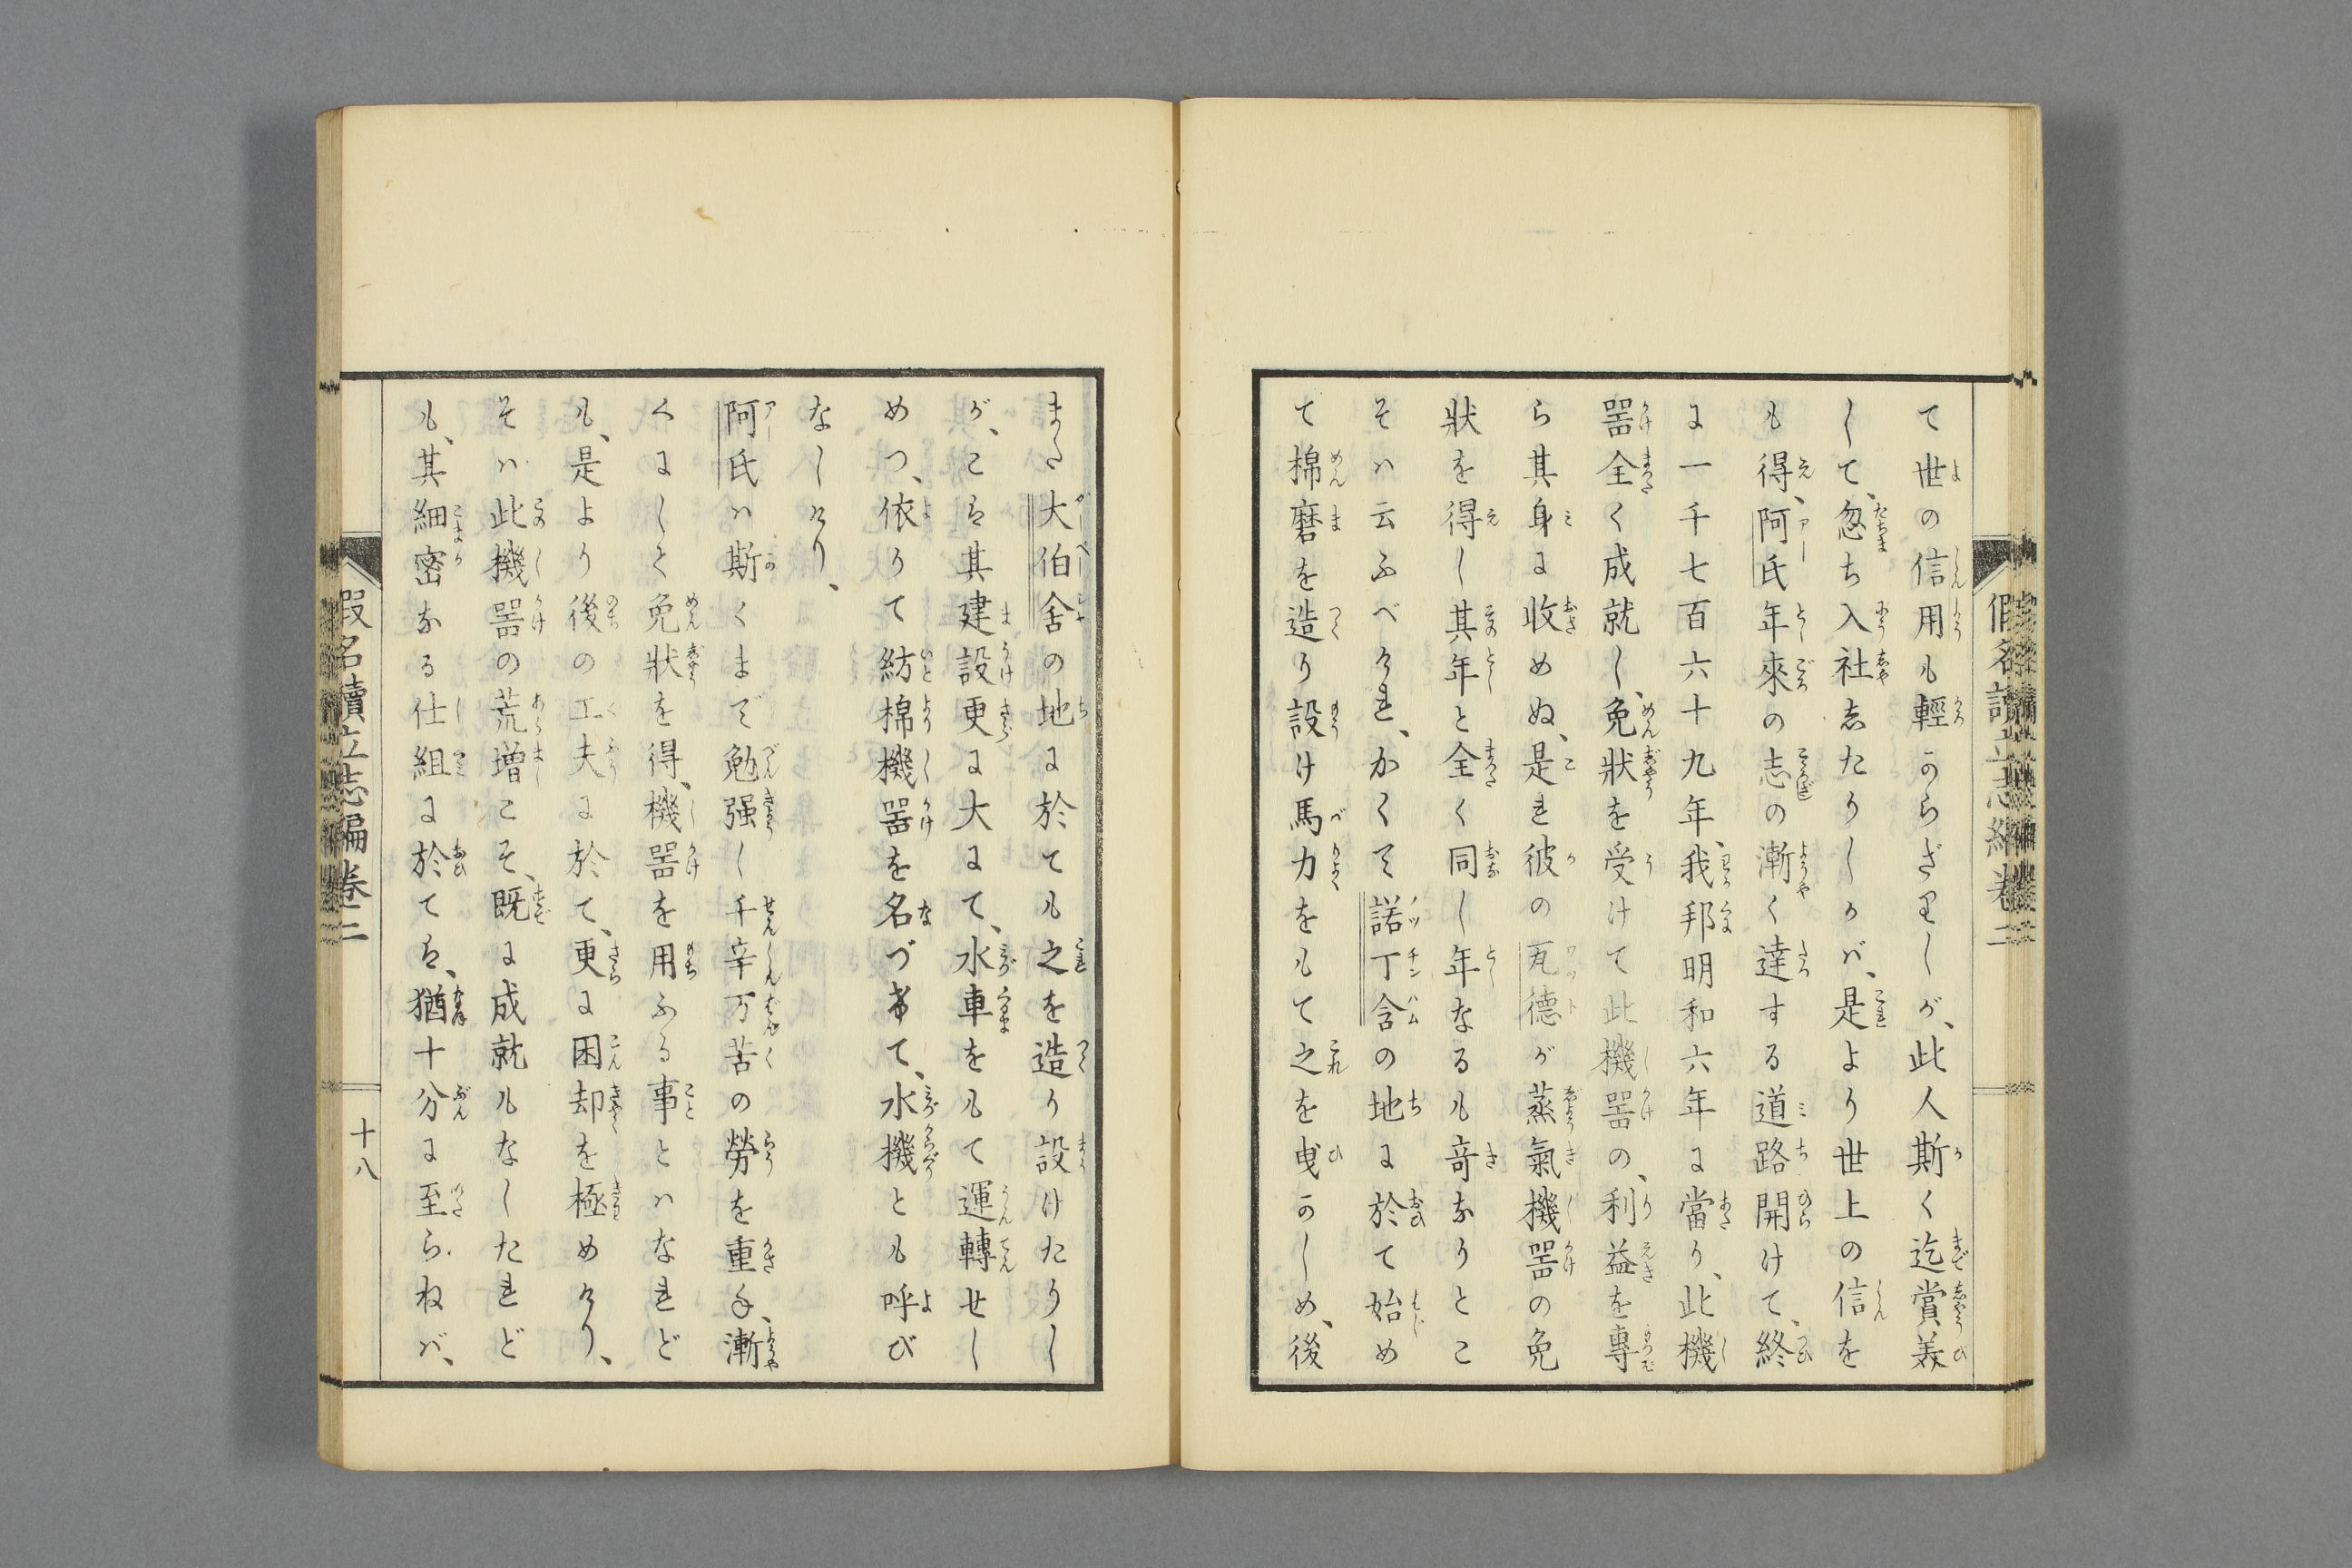 て世の信用も輕からざりしが、此人斯く迄賞美
して、忽ち入社志たりしかバ、是より世上の信を
も得、阿氏年來の志の漸く達する道路開けて、終
に一千七百六十九年、我邦明和六年に當り、此機
噐全く成就し、免狀を受けて此機噐の、利益を專
ら其身に收めぬ、是れ彼の瓦德が蒸氣機噐の免
狀を得し其年と全く同し年なるも竒なりとこ
そハ云ふべけれ、かくて諾丁含の地に於て始め
て棉磨を造り設け馬力をもて之を曳かしめ、後
また大伯舍の地に於ても之を造り設けたりし
が、こは其建設更に大にて、水車をもて運轉せし
めつ、依りて紡棉機噐を名づけて、水機とも呼び
なしけり、
阿氏ハ斯くまで勉强し千辛万苦の勞を重ね、漸
くにして免狀を得、機噐を用ふる事とハなれど
も、是より後の工夫に於て、更に困却を極めけり、
そハ此機噐の荒増こそ、既に成就もなしたれど
も、其細密なる仕組に於ては、猶十分に至らねバ、
假名讀立志編卷二
十八